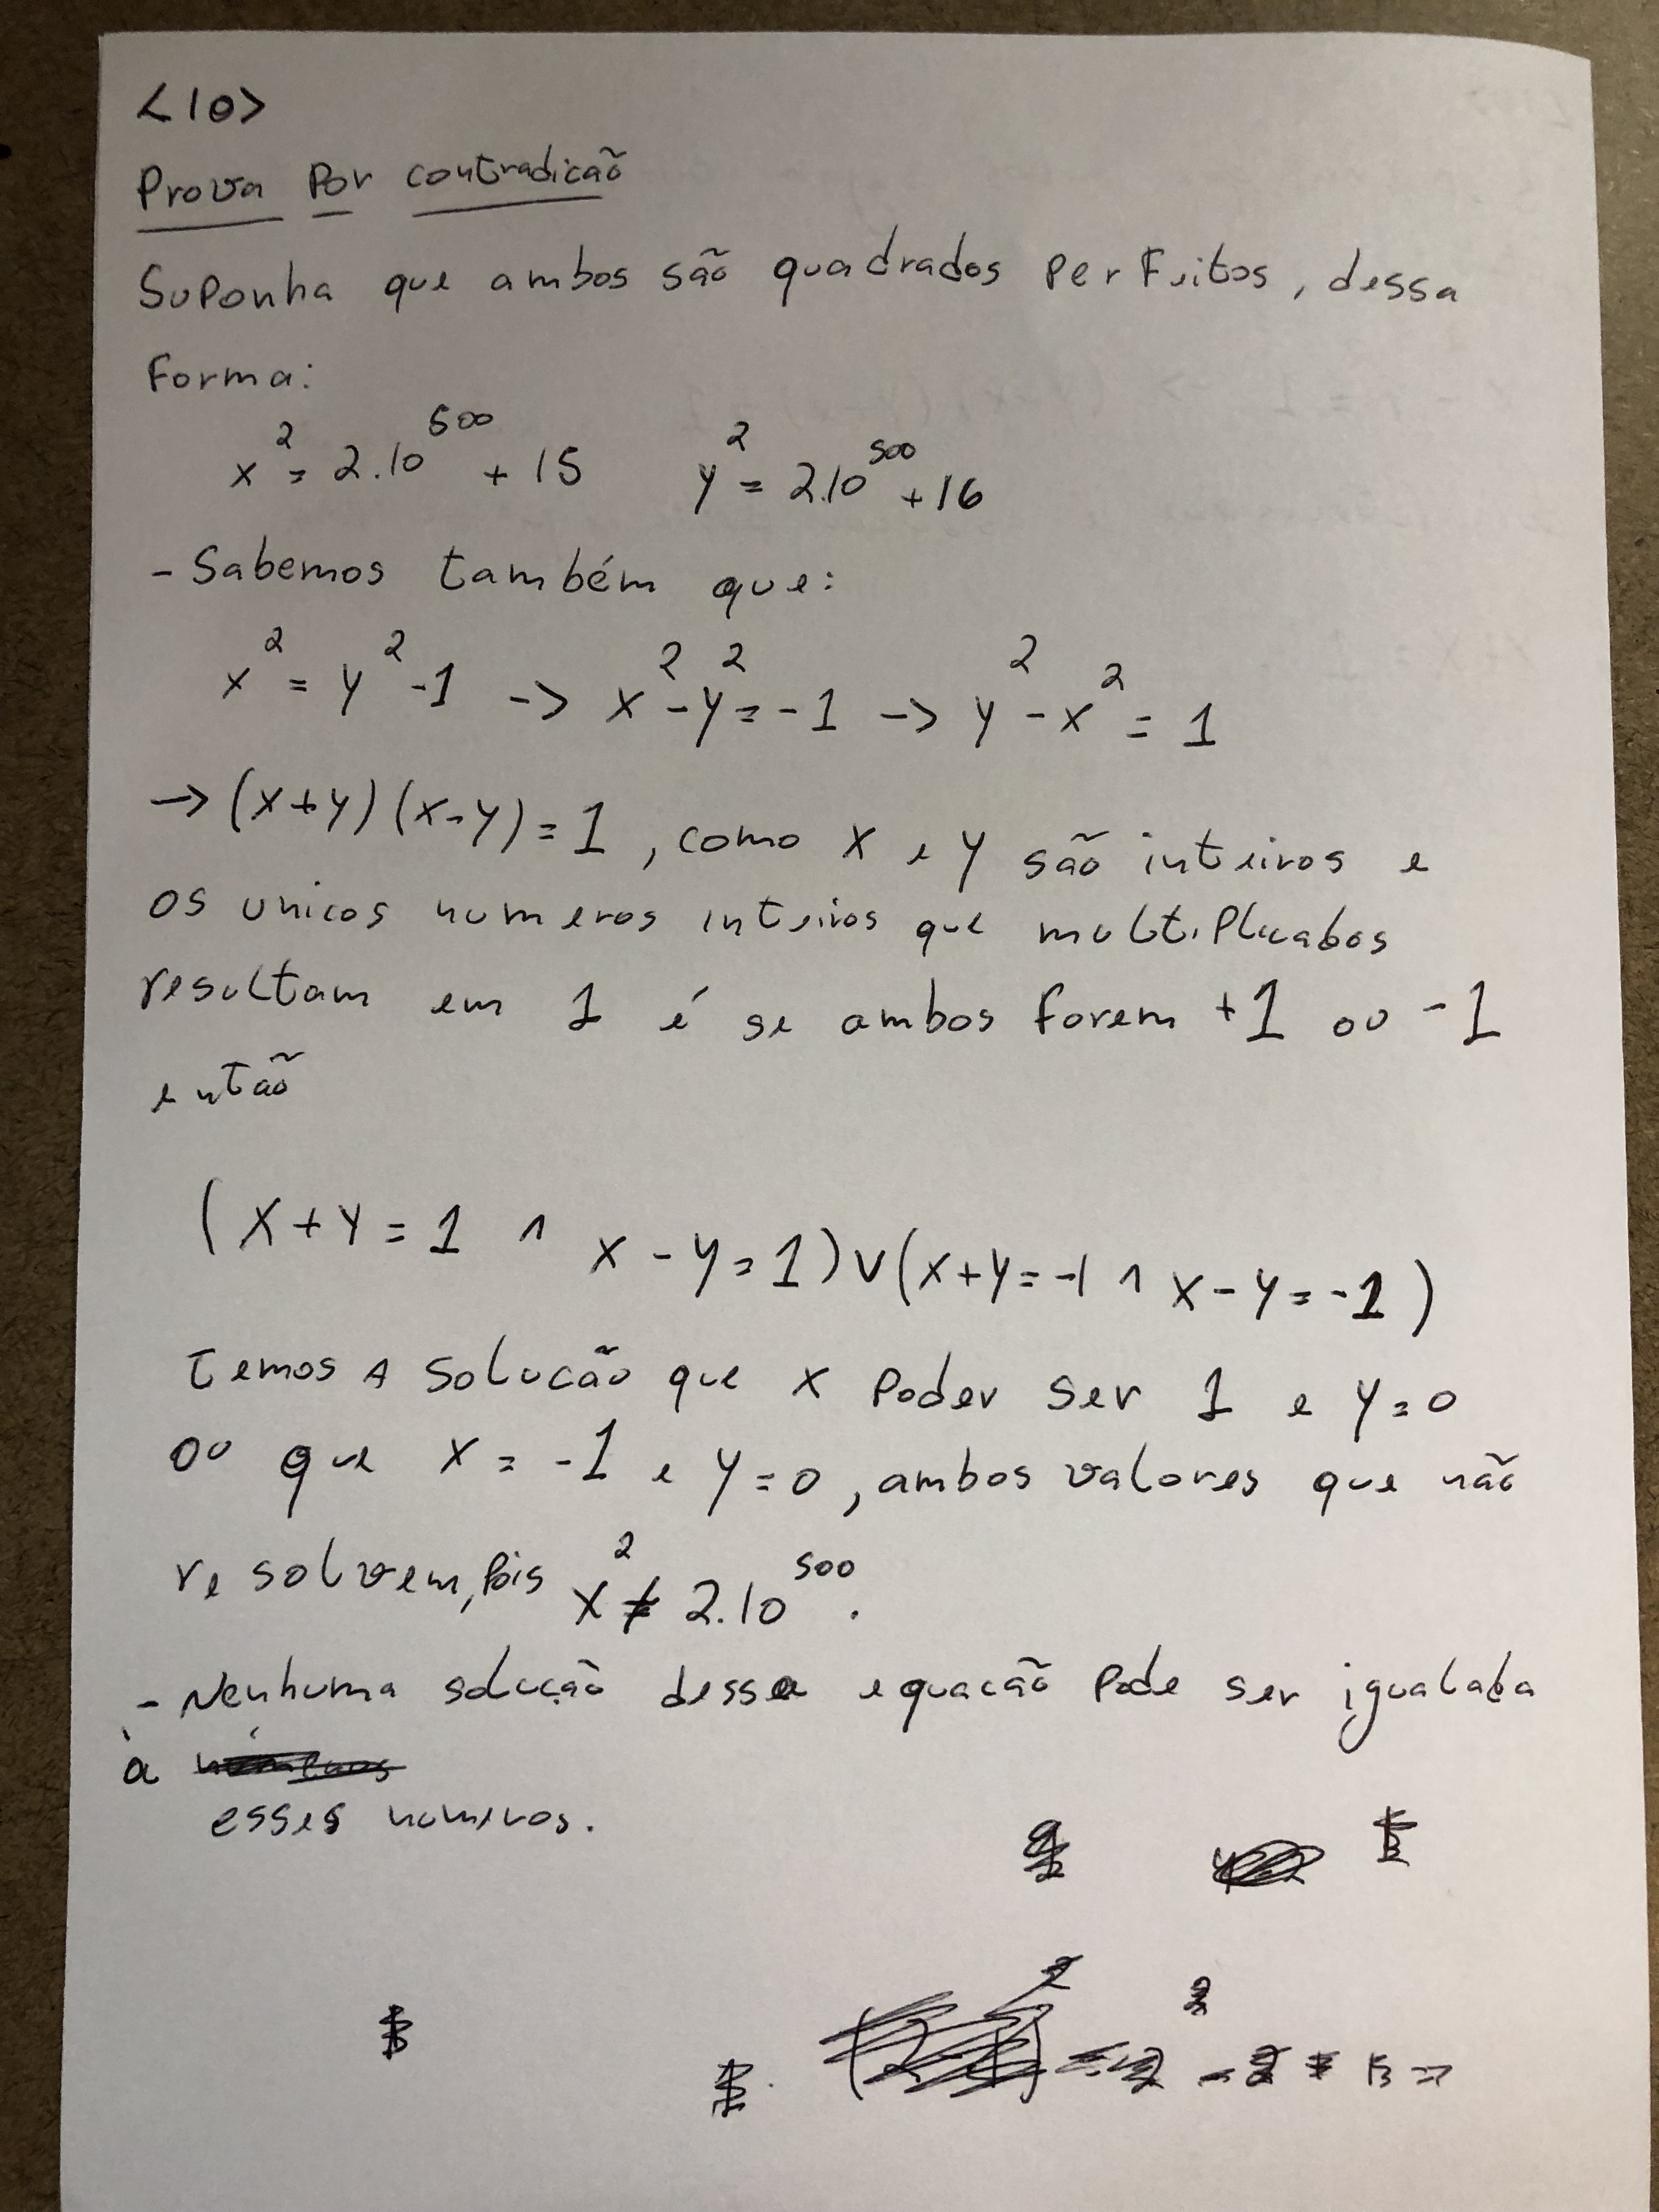 <10>
Prova Por contradicão
Suponha que ambos são quadrados perfeitos, dessa
forma:
x² = 2.10⁵⁰⁰ + 15 y² = 2.10⁵⁰⁰ + 16
- Sabemos também que:
x² = y² - 1 -> x² - y² = -1 -> y² - x² = 1
-> (x+y)(x-y) = 1, como x e y são inteiros e
os unicos numeros inteiros que multiplicados
resultam em 1 é se ambos forem +1 ou -1
então
(x+y = 1 ^ x-y = 1) v (x+y = -1 ^ x-y = -1)
temos A solucão que x poder ser 1 e y = 0
ou que x = -1 e y = 0, ambos valores que não
resolvem, pois x² ≠ 2.10⁵⁰⁰.
- Nenhuma solução dessa equacão pode ser igualada
à
esses numeros.